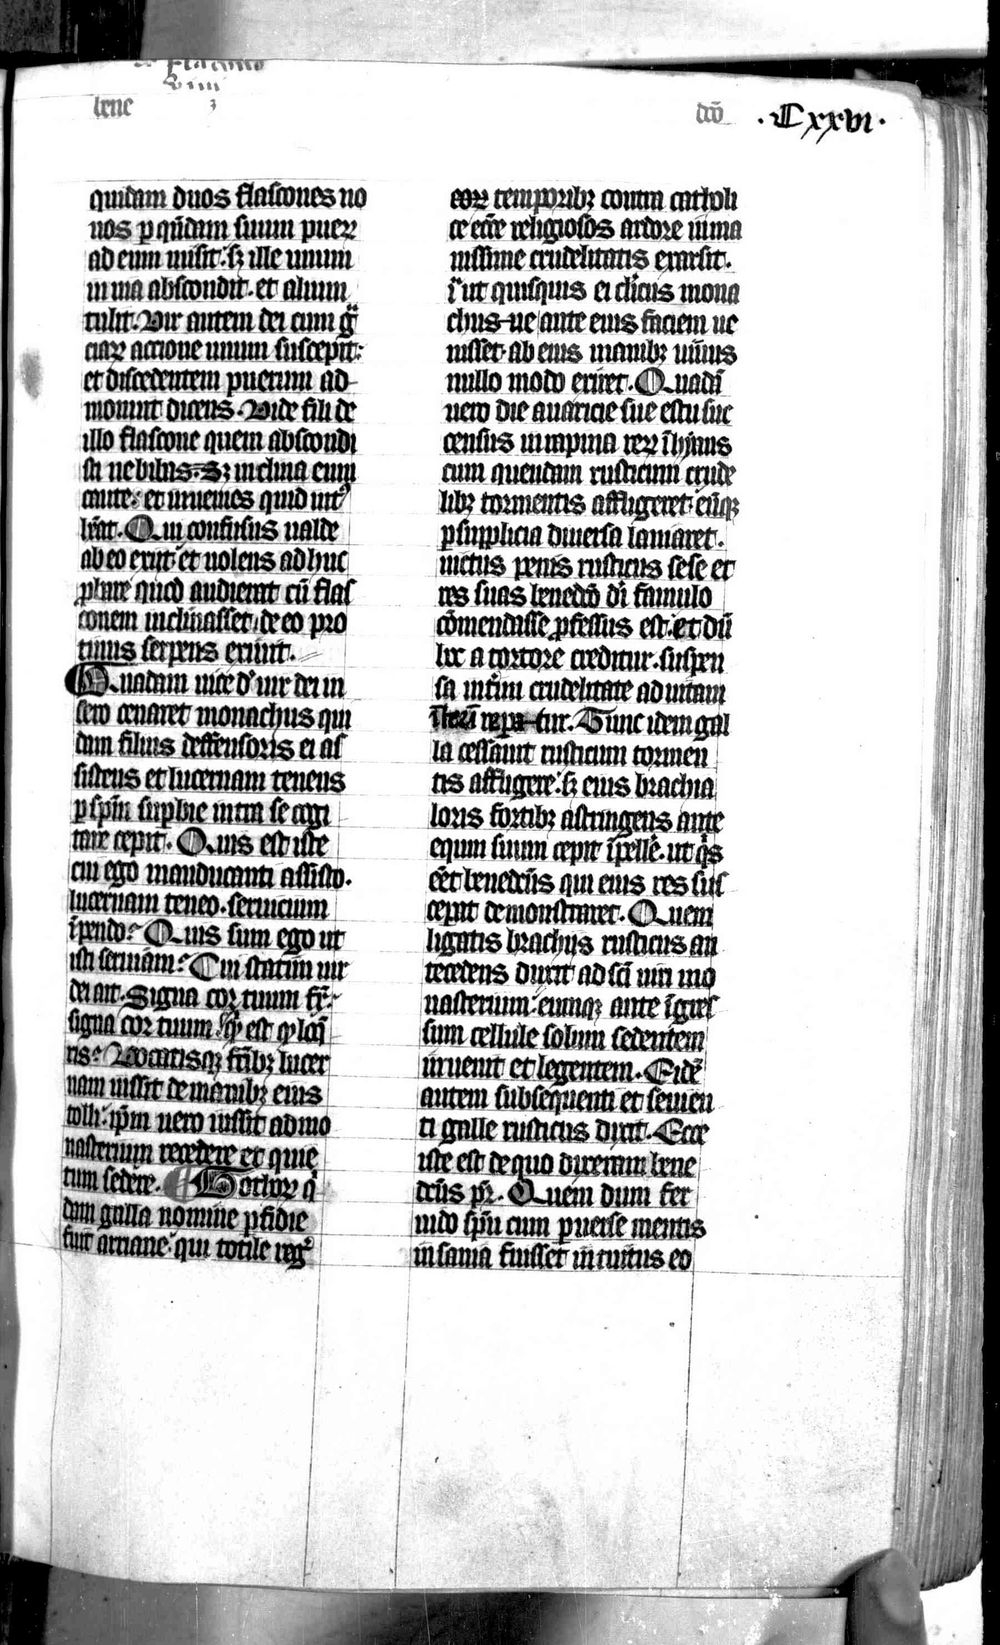 bene
dc̄o
.Cxxvi.
quidam duos flascones no
nos p qn̄dam suum pueꝝ
ad eum misit. sꝫ ille unum
in uia abscondit. et alium
tulit. Vir autem dei cum gr̄a
ciaꝝ actione unum suscepit:
et discedentem puerum ad-
monuit dicens. Vide fili de
illo flascone quem abscondi
sti ne bibas. Sꝫ inclina eum
caute: et inuenies quid int᷒
lr̄at. Qui confusus ualde
ab eo exiit et uolens adhuc
ꝓbare quod audierat cū flas
conem inclinasset: de eo pro
tinus serpens exiuit.
Quadam uice dʼ uir dei in
sero cenaret monachus qui
dam filius deffensoris ei as
sistens et lucernam tenens
p spm̄ supbie intra se cogi
tare cepit. Quis est iste
cui ego manducanti assisto.
lucernam teneo. seruicium
īpendo? Quis sum ego ut
isti seruiam? Cui statim uir
dei ait. Signa cor tuum fr̄.
signa cor tuum qͥd est qͥ loq̄
ris? Vocatisqꝫ fr̄ibꝫ lucer
nam iussit de manibꝫ eius
tolli. ipm̄ uero iussit ad mo
nasterium recedere et quie
tum sedere. Gothoꝝ qͥ
dam galla nomine pfidie
fuit arriane. qui totile reg̉
eoꝝ temporibꝫ contra catholi
ce ecc̄e religiosos ardore inma
nissime crudelitatis exarsit.
ī ut quisquis ei cl̄icus mona
chus-ue ante eius faciem ue
nisset. ab eius manibꝫ uiuus
nullo modo exiret. Quadā
uero die auaricie sue estu suc
census in rapina reꝝ īhyans
cum quendam rusticum crude
libꝫ tormentis affligeret. eūqꝫ
p supplicia diuersa laniaret.
uictus penis rusticus sese et
res suas benedc̄o dī famulo
cōmendasse ꝓfessus est. et dū
hͦ a tortore creditur. suspen
sa int̉im crudelitate ad uitam
tur. Tunc idem gal
la cessauit rusticum tormen
tis affligere. sꝫ eius brachia
loris fortibꝫ astringens ante
equm suum cepit īpellẻ. ut qͥs
ēet benedc̄us qui eius res sus
ceperat demonstraret. Quem
ligatis brachijs rusticus an
tecedens duxit ad sc̄i uiri mo
nasterium. eumqꝫ ante īgres
sum cellule solum sedentem
inuenit et legentem. Eidē
autem subsequenti et seuien
ti galle rusticus dixit. Ecce
iste est de quo dixeram bene
dc̄us pr̄. Quem dum fer
uido sp̄u cum peruerse mentis
insania fuisset intuitus eo